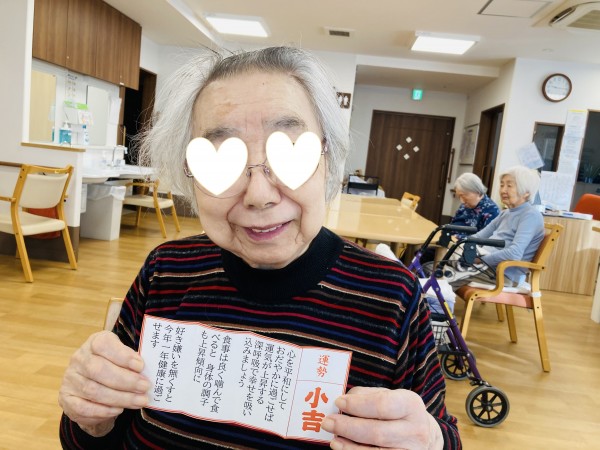 運勢
小吉
心を平和にして
おだやかに過ごせば
運気が上昇する
深呼吸で幸せを吸い
込みましょう
食事は良く噛んで食
べると 身体の調子
も上昇傾向に
好き嫌いを無くすと
今年一年健康に過ご
せます